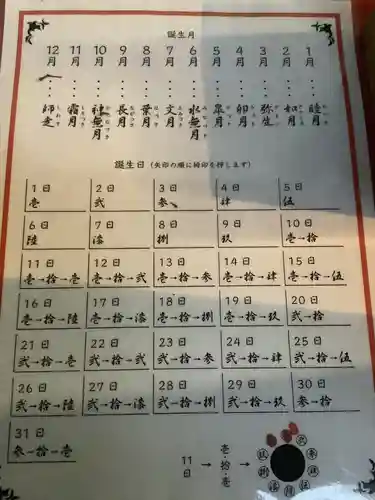 誕生月
1月…睦月
むつき
2月…如月
きさらぎ
3月…弥生
やよい
4月…卯月
うづき
5月…皐月
さつき
6月…水無月
みなづき
7月…文月
ふみづき
8月…葉月
はづき
9月…長月
ながつき
10月…神無月
かんなづき
11月…霜月
しもつき
12月…師走
しわす
誕生日(矢印の順に梅印を押します)
1日 2日 3日 4日 5日
壱 弐 参 肆 伍
6日 7日 8日 9日 10日
陸 漆 捌 玖 壱→拾
11日 12日 13日 14日 15日
壱→拾→壱 壱→拾→弐 壱→拾→参 壱→拾→肆 壱→拾→伍
16日 17日 18日 19日 20日
壱→拾→陸 壱→拾→漆 壱→拾→捌 壱→拾→玖 弐→拾
21日 22日 23日 24日 25日
弐→拾→壱 弐→拾→弐 弐→拾→参 弐→拾→肆 弐→拾→伍
26日 27日 28日 29日 30日
弐→拾→陸 弐→拾→漆 弐→拾→捌 弐→拾→玖 参→拾
31日
参→拾→壱
11日→壱・拾・壱→